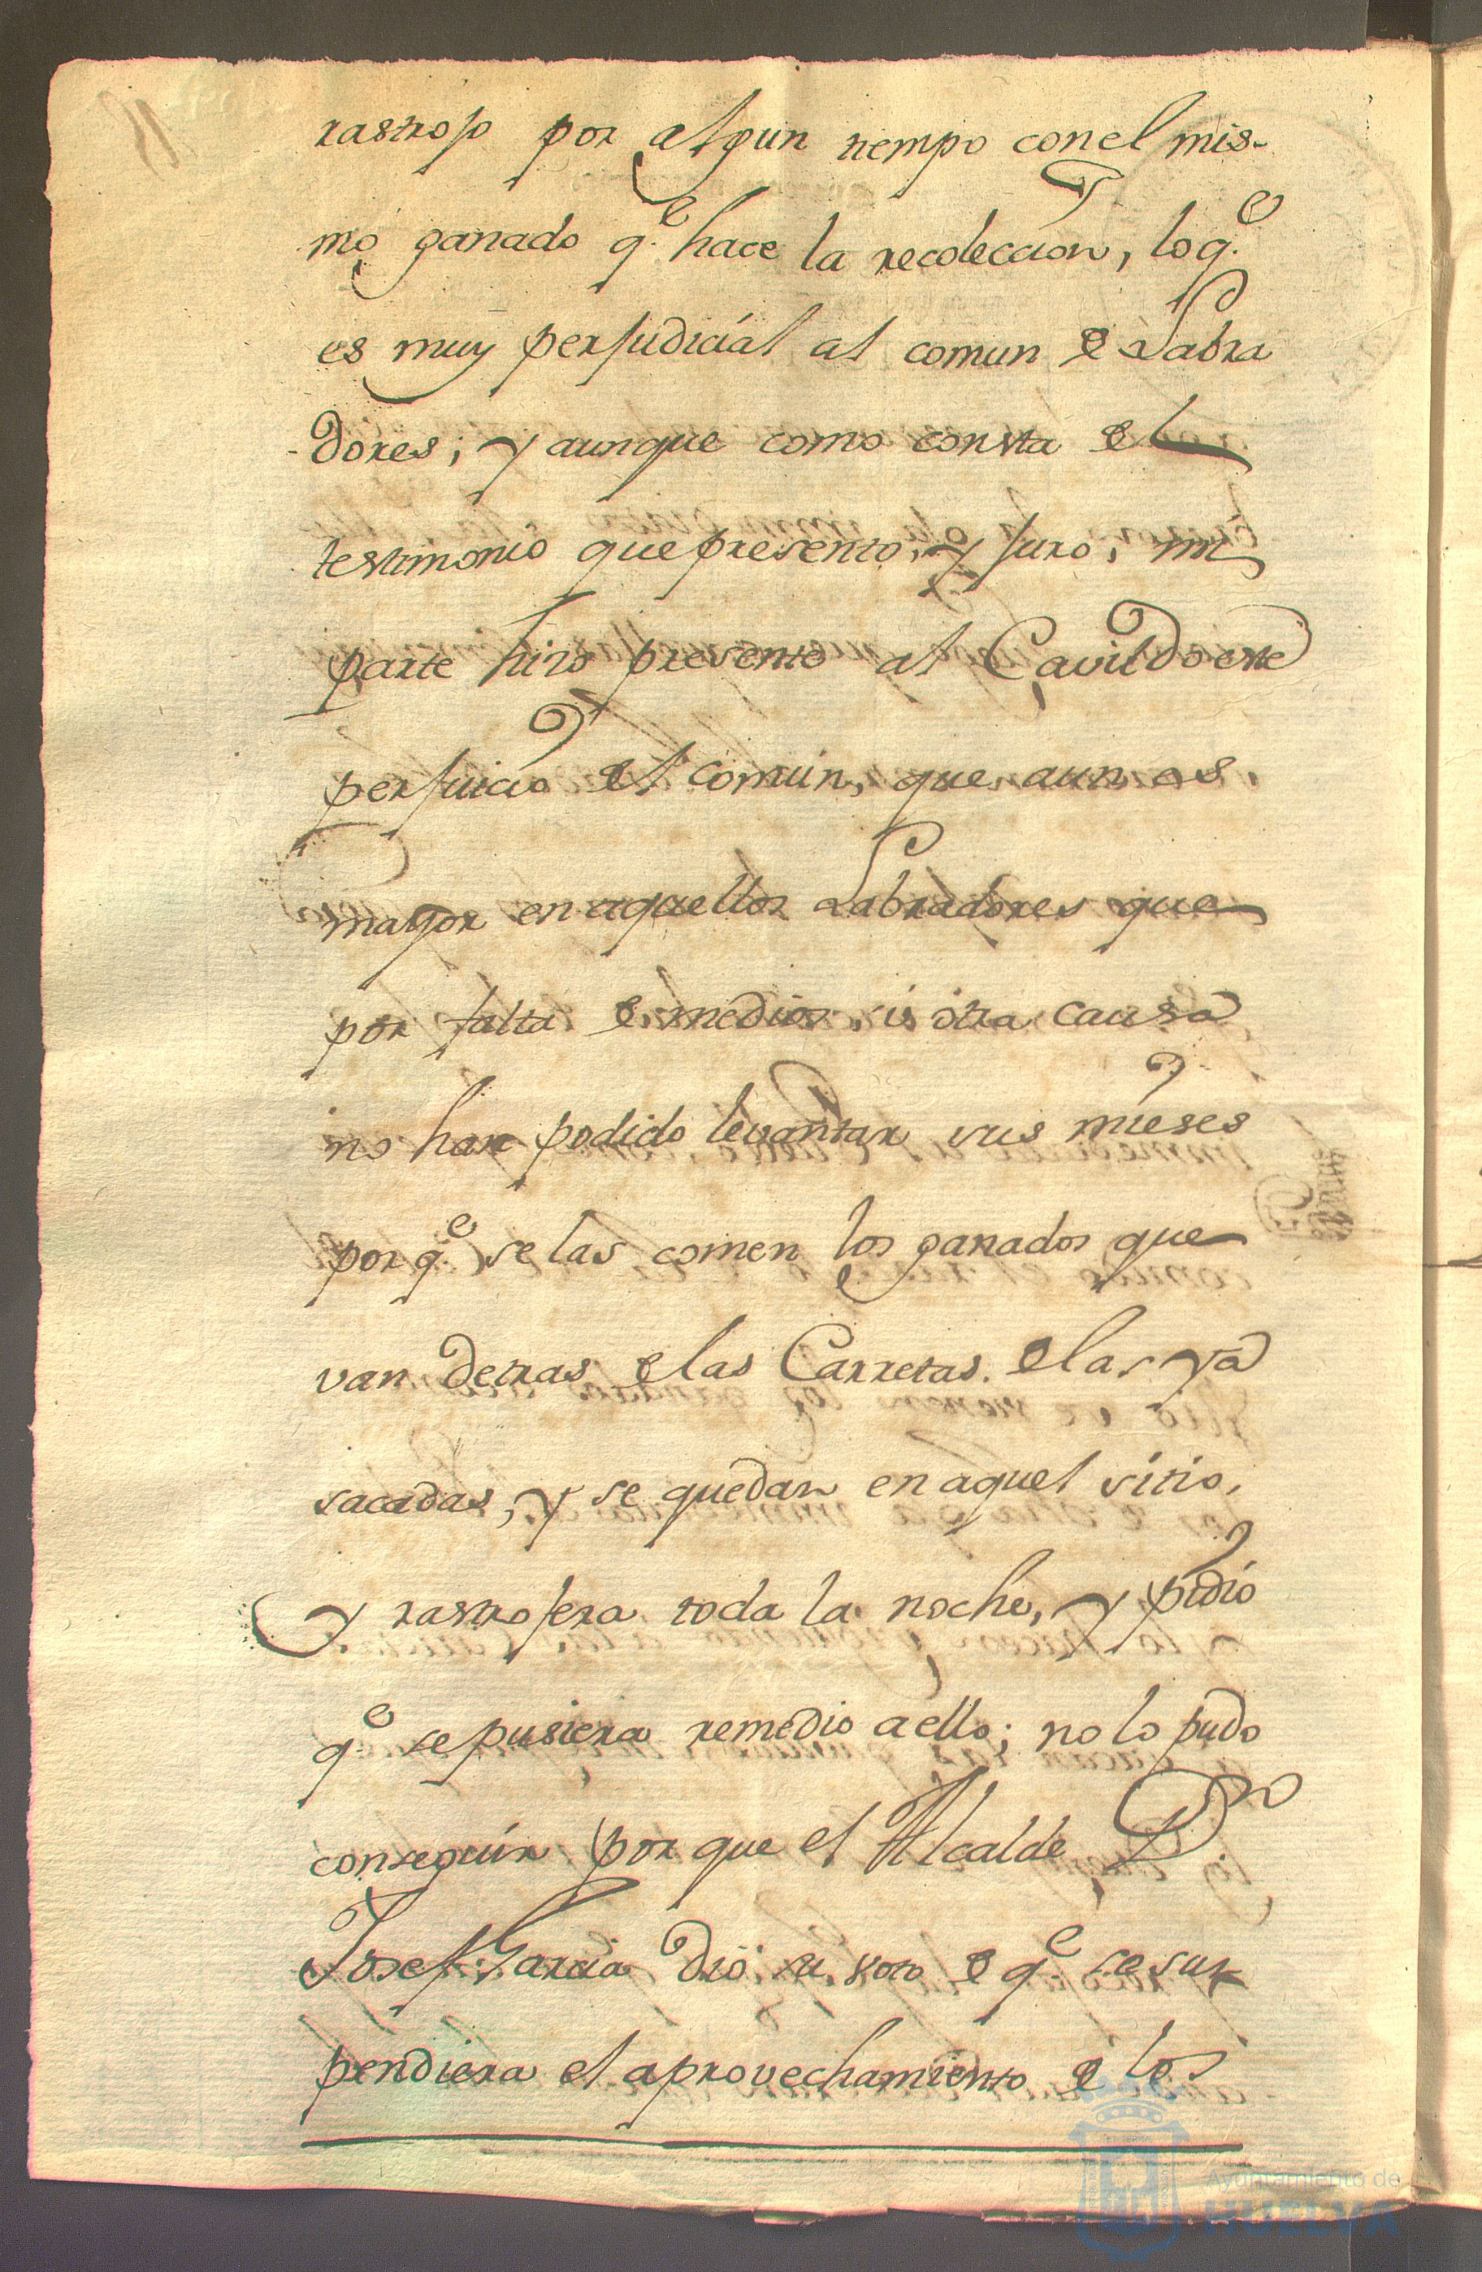 rastrojo por algun tiempo con el mis-
mo ganado q.e hace la recoleccion, lo q.e
es muy perjudiciál al comun de Labra
dores; y aunque como consta del
testimonio que presento, y juro, mi
parte hizo presente al Cavildo este
perjuicio del comun, que aun es
mayor en aquellos Labradores que
por falta de medios, ù otra causa
no han podido levantar sus mieses
por q.e se las comen los ganados que
van detras de las Carretas de las yá
sacadas, y se quedan en aquel sitio,
y rastrojera toda la noche, y pidió
q.e se pusiera remedio a ello; no lo pudo
conseguir por que el Alcalde D.n
Josef Garcia dió su voto de q.e se sus
pendiera el aprovechamiento de los
Ayuntamiento de
HUELVA